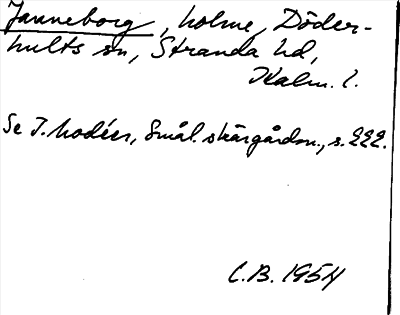 Janneborg, holme, Döder-
hults sn, Stranda hd,
Kalm. l.
Se T. Modéer, Smål. skärgårdsn., s. 222.
C.B. 1954